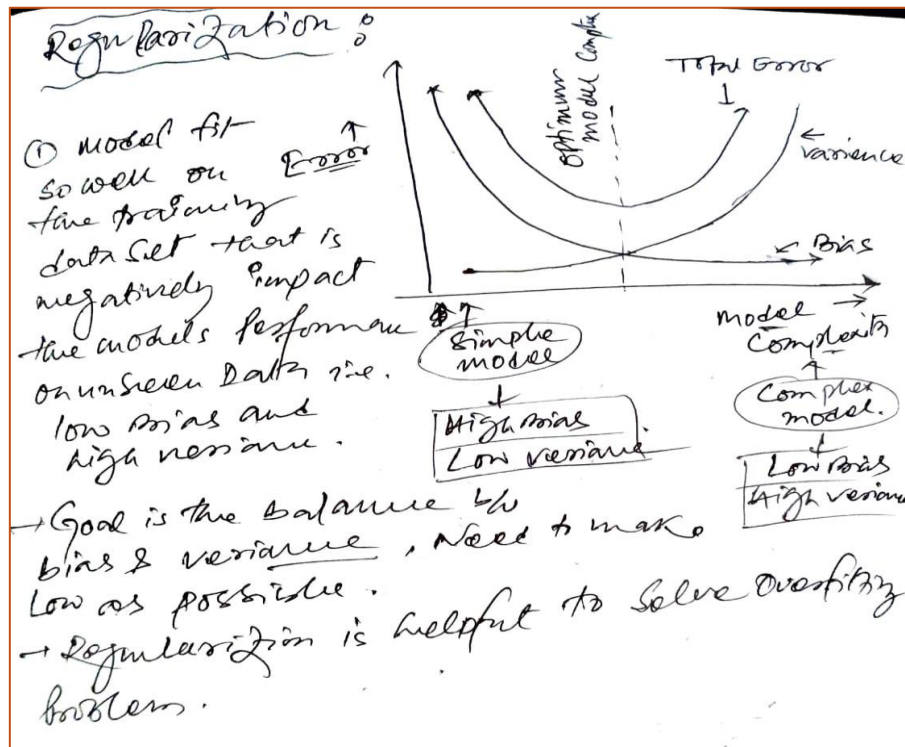 Regularization :
① model fit
so well on
the training
data set that is
negatively impact
the models performance
on unseen Data i.e.
low Bias and
high veriance.
Error
optimum
model Complex
Total Error
varience
Bias
Model
Complexity
Simple
model
High Bias
Low veriance.
Complex
model.
Low Bias
High veriance
→ Goal is the balance b/w
bias & veriance, Need to make
Low as possible.
→ Regularizion is helpful to solve Overfiting
problem.